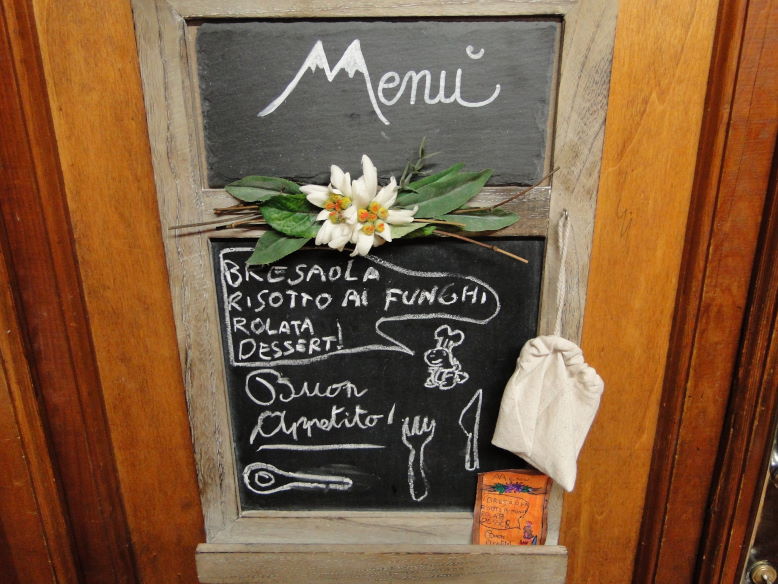 Menŭ
BRESAOLA
RISOTTO AI FUNGHI
ROLATA
DESSERT!
Buon
Appetito!